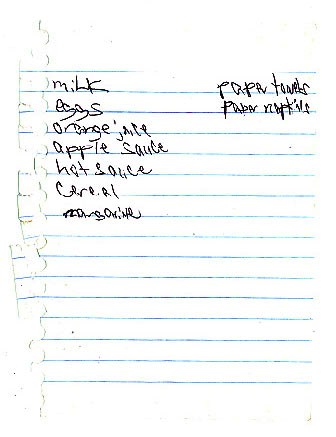 milk
eggs
orange juice
apple sauce
hot sauce
cereal
margarine
paper towels
paper napkins